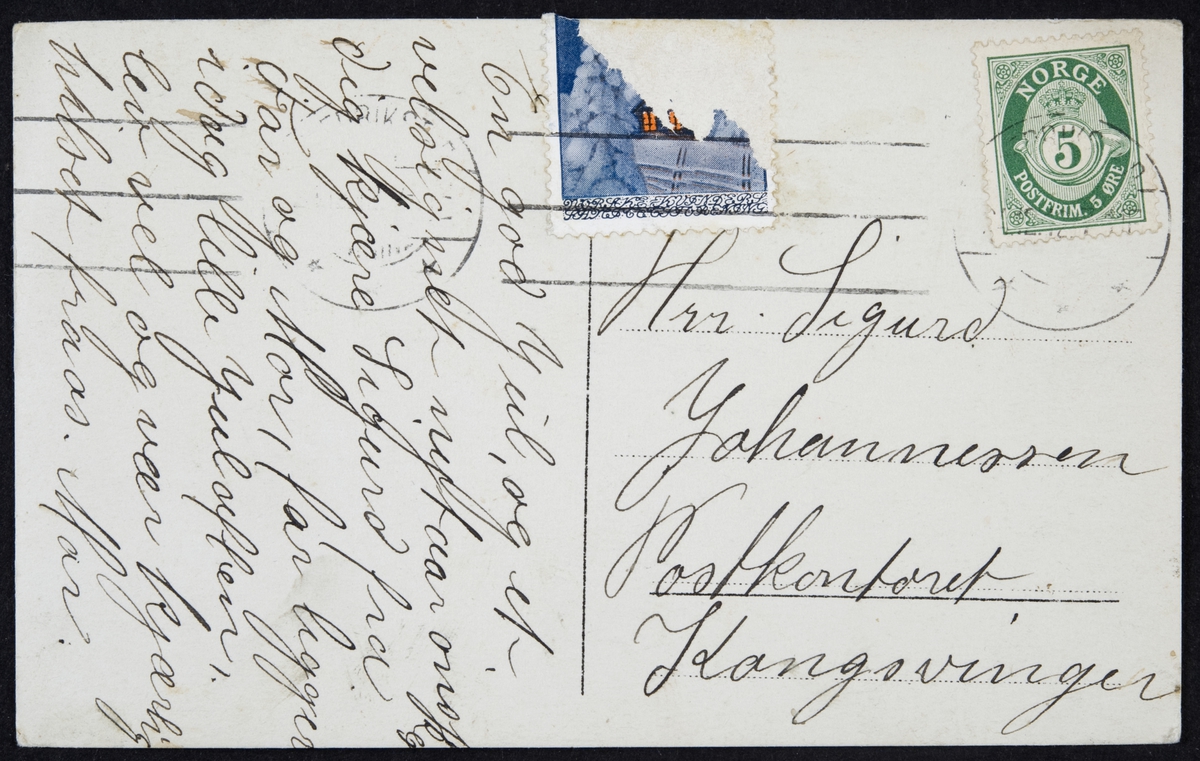 En god Jul, og et
velsignet nyttaar ønskes
dig kjære Sigurd fra
Far og Mor, far ligger
idag lille Julaften,
lev vel og vær kjærlig
hilset fra os. Mor.
NORGE
5
POSTFRIM. 5 ØRE
Hrr. Sigurd
Johannessen
Postkontoret
Kongsvinger